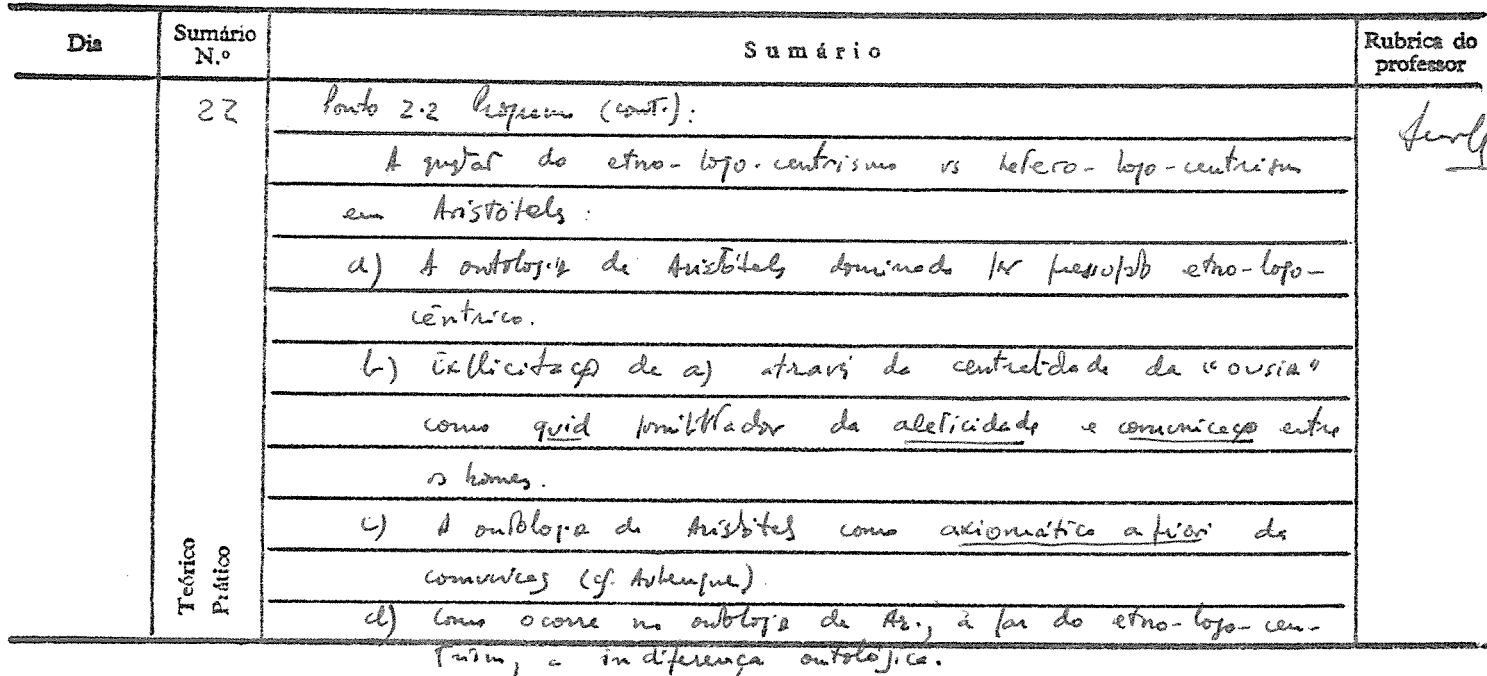 Dia Sumário N.º Sumário Rubrica do professor
22 Ponto 2.2 Programa (cont.):
A questão do etno-logo-centrismo vs hetero-logo-centrismo
em Aristóteles:
a) A ontologia de Aristóteles dominada por pressuposto etno-logo-
cêntrico.
b) Explicitação de a) através da centralidade da "ousia"
como quid possibilitador da aleticidade e comunicação entre
os homens.
c) A ontologia de Aristóteles como axiomática a priori da
comunicação (cf. Aubenque).
d) Como ocorre na ontologia de Ar., à par do etno-logo-cen-
trismo, a indiferença ontológica.
Teórico
Prático